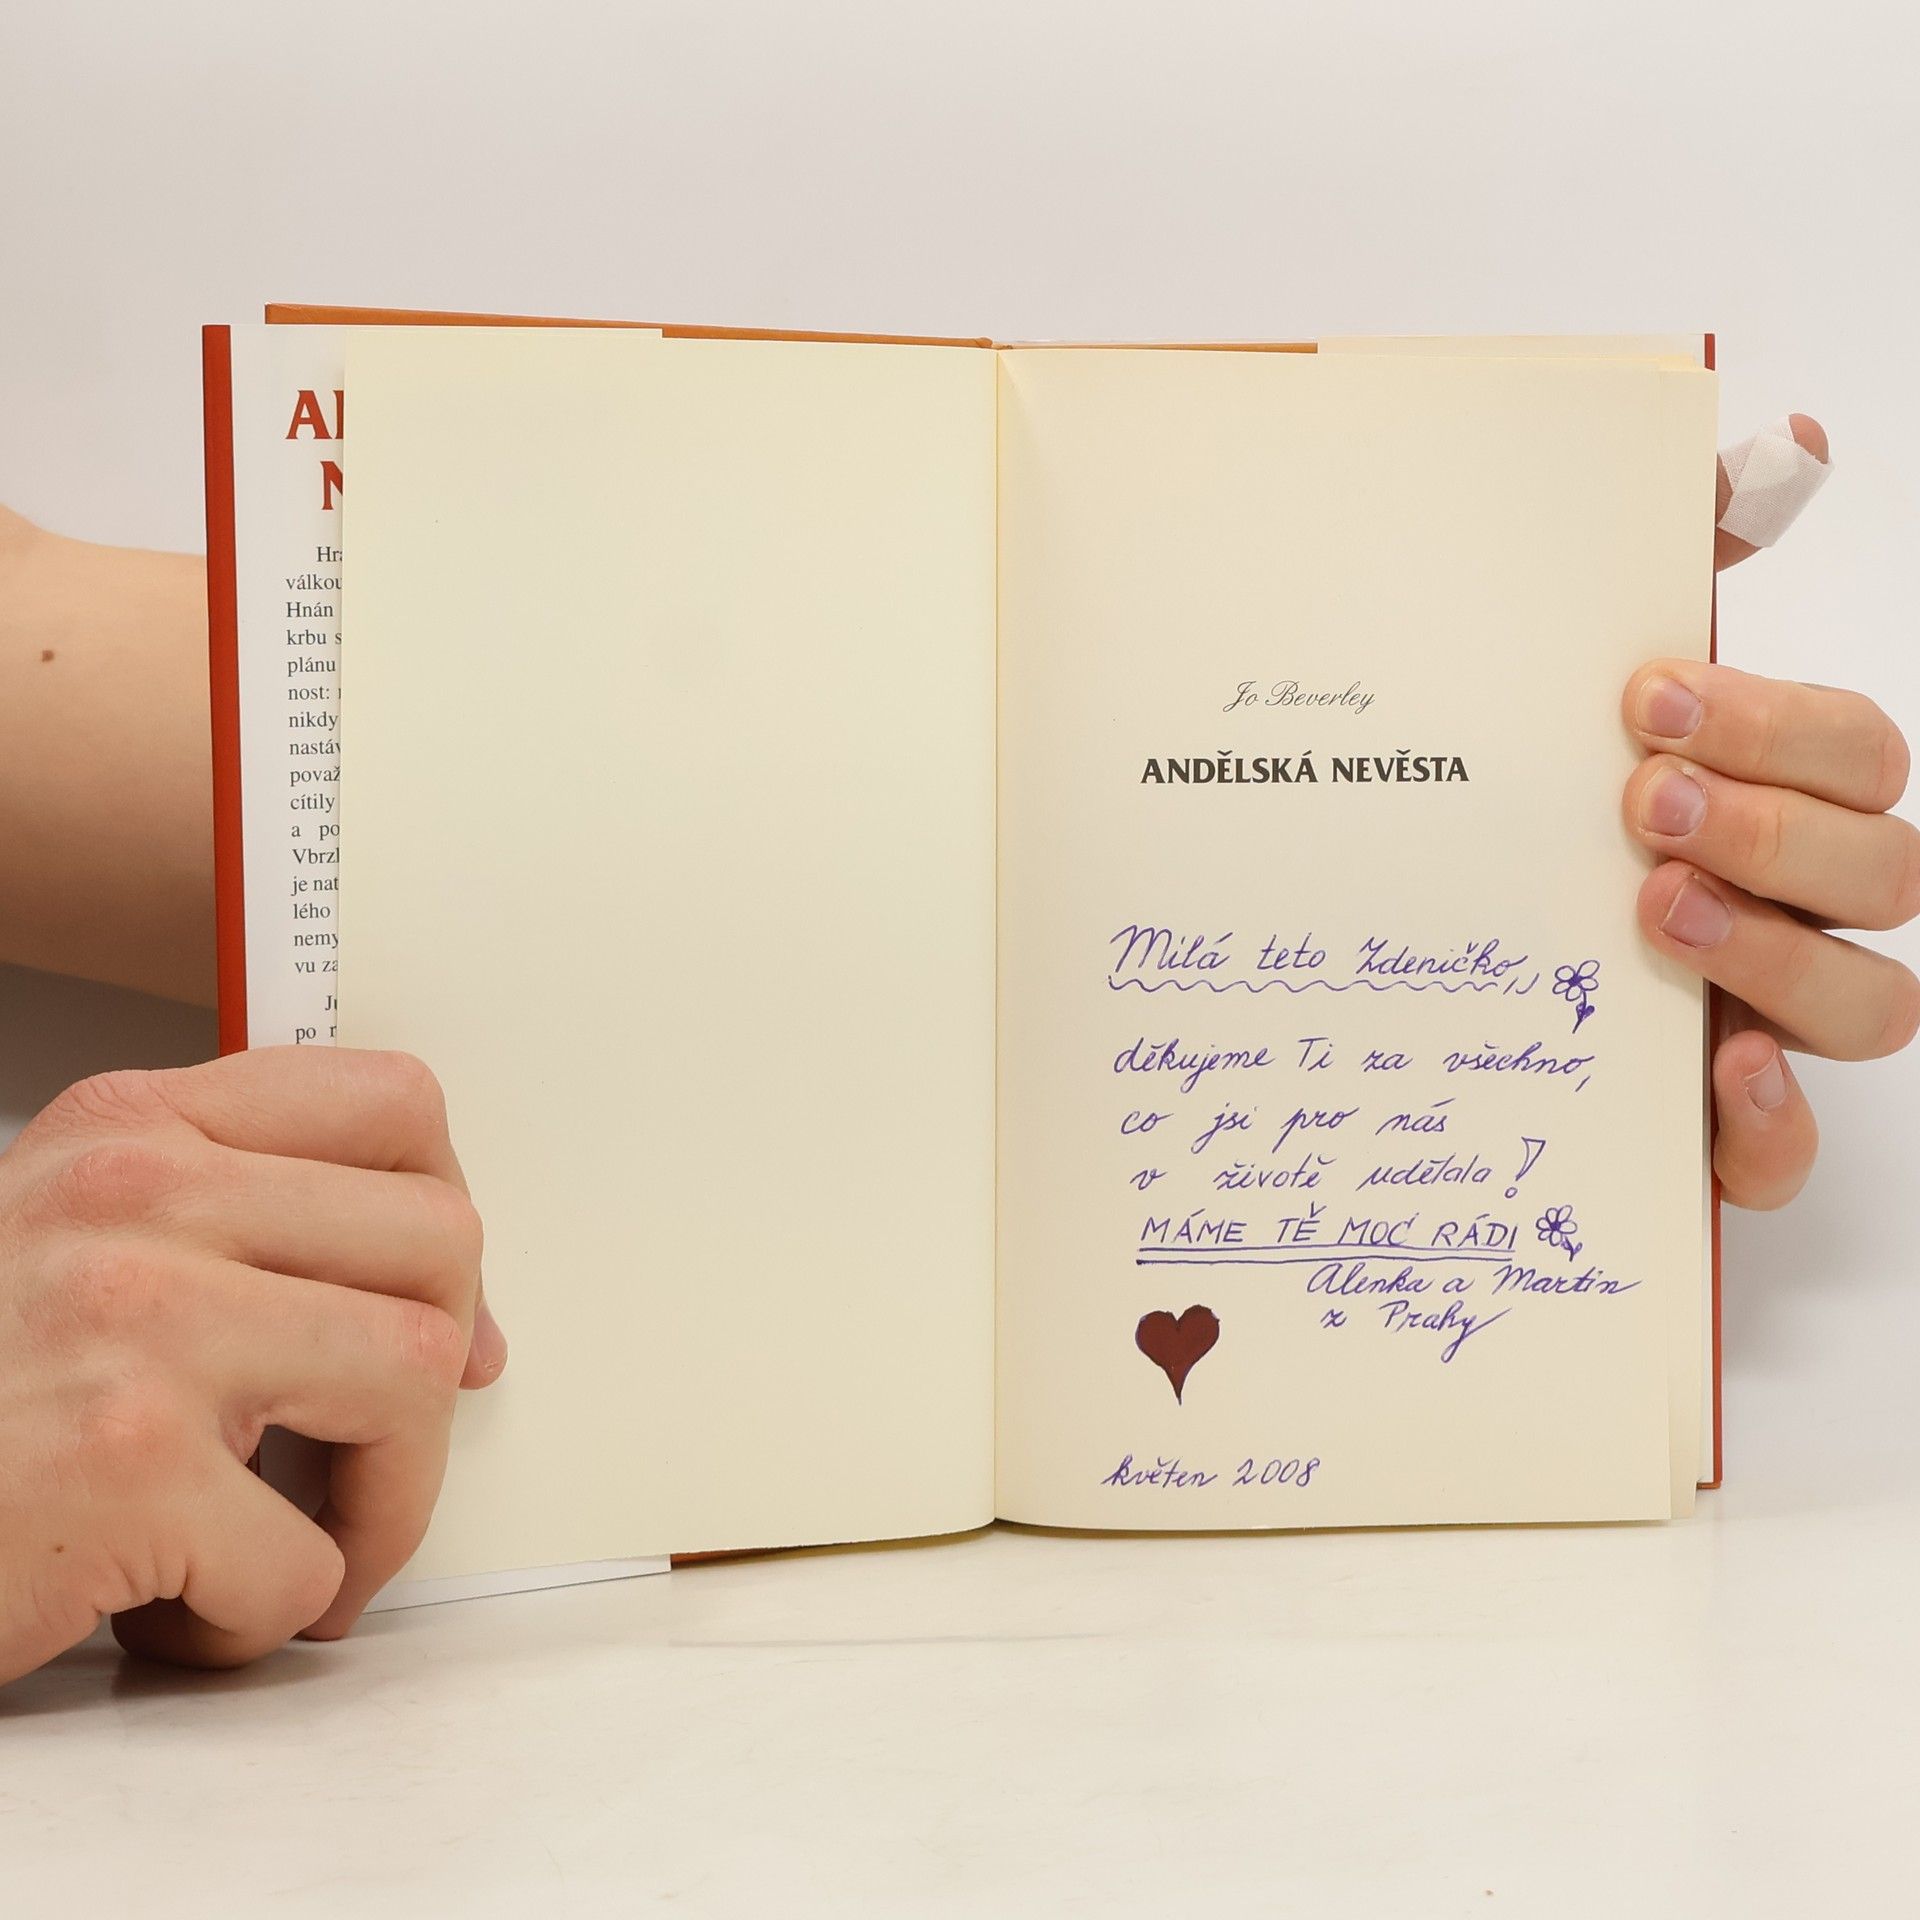 Hra
válkou
Hnán
krbu s
plánu
nost:
nikdy
nastáv
považ
cítily
a po
Vbrzk
je nat
lého
nemy
vu za
po
Jo Beverley
ANDĚLSKÁ NEVĚSTA
Milá teto Zdeničko,
děkujeme Ti za všechno,
co jsi pro nás
v životě udělala!
MÁME TĚ MOC RÁDI
Alenka a Martin
z Prahy
květen 2008